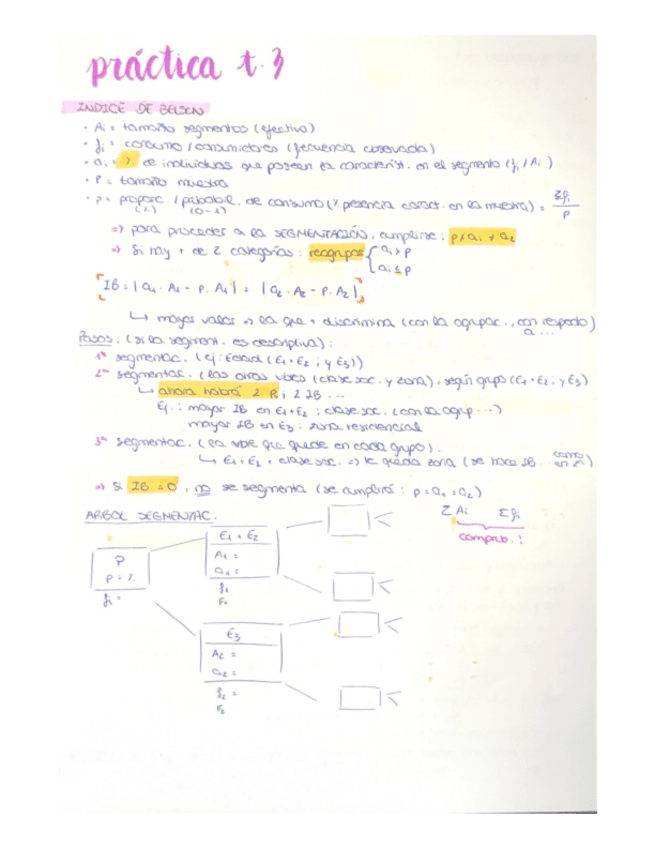 práctica t.3
INDICE DE BELSON
• Ai = tamaño segmentos (efectivo)
• fi = consumo / consumidores (frecuencia observada)
• ai = % de individuos que posean la característ. en el segmento (fi / Ai)
• P = tamaño muestra
• p = proporc. / probabil. de consumo (% presencia caract. en la muestra) = Σfi / P
(%) (0-1)
⇒ para proceder a la SEGMENTACIÓN, cumplirse: p ≠ a1 ≠ a2
⇒ Si hay + de 2 categorías: reagrupar { ai > p
ai ≤ p
IB = | a1 · A1 - p · A1 | = | a2 · A2 - p · A2 |
↳ mayor valor ⇒ la que + discrimina (con la agrupac., con respecto)
a ...
Pasos: (si la segment. es descriptiva):
1ª segmentac. (Ej: Edad (E1+E2 ; y E3))
2ª segmentac. (las otras vbles (clase soc. y zona), según grupo (E1+E2 ; y E3)
↳ ahora habrá 2 P, y 2 IB ...
Ej.: mayor IB en E1+E2 : clase soc. (con la agrup...)
mayor IB en E3 : zona residencial
3ª segmentac. (la vble que quede en cada grupo).
↳ E1+E2 + clase soc. ⇒ le queda zona (se hace IB como en 2ª)
⇒ Si IB = 0, no se segmenta (se cumplirá: p = a1 = a2)
ARBOL SEGMENTAC.
Σ Ai Σ fi
comprob.!
P
p = %
fi =
E1 + E2
A1 =
a1 =
f1
F1
E3
A2 =
a2 =
f2 =
F2